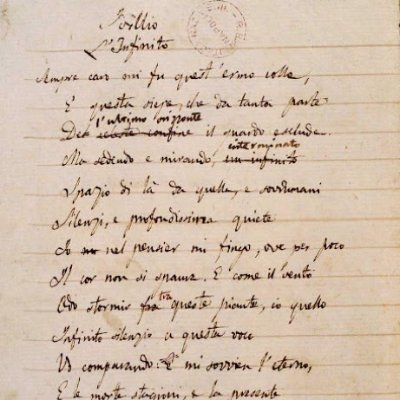 Idillio
L'Infinito
Sempre caro mi fu quest'ermo colle,
E questa siepe, che da tanta parte
l'ultimo orizzonte
Del celeste confine il guardo esclude.
interminato
Ma sedendo e mirando, un infinito
Spazio di là da quella, e sovrumani
Silenzi, e profondissima quiete
Io nel pensier mi fingo, ove per poco
Il cor non si spaura. E come il vento
tra
Odo stormir fra queste piante, io quello
Infinito silenzio a questa voce
Vo comparando: E mi sovvien l'eterno,
E le morte stagioni, e la presente